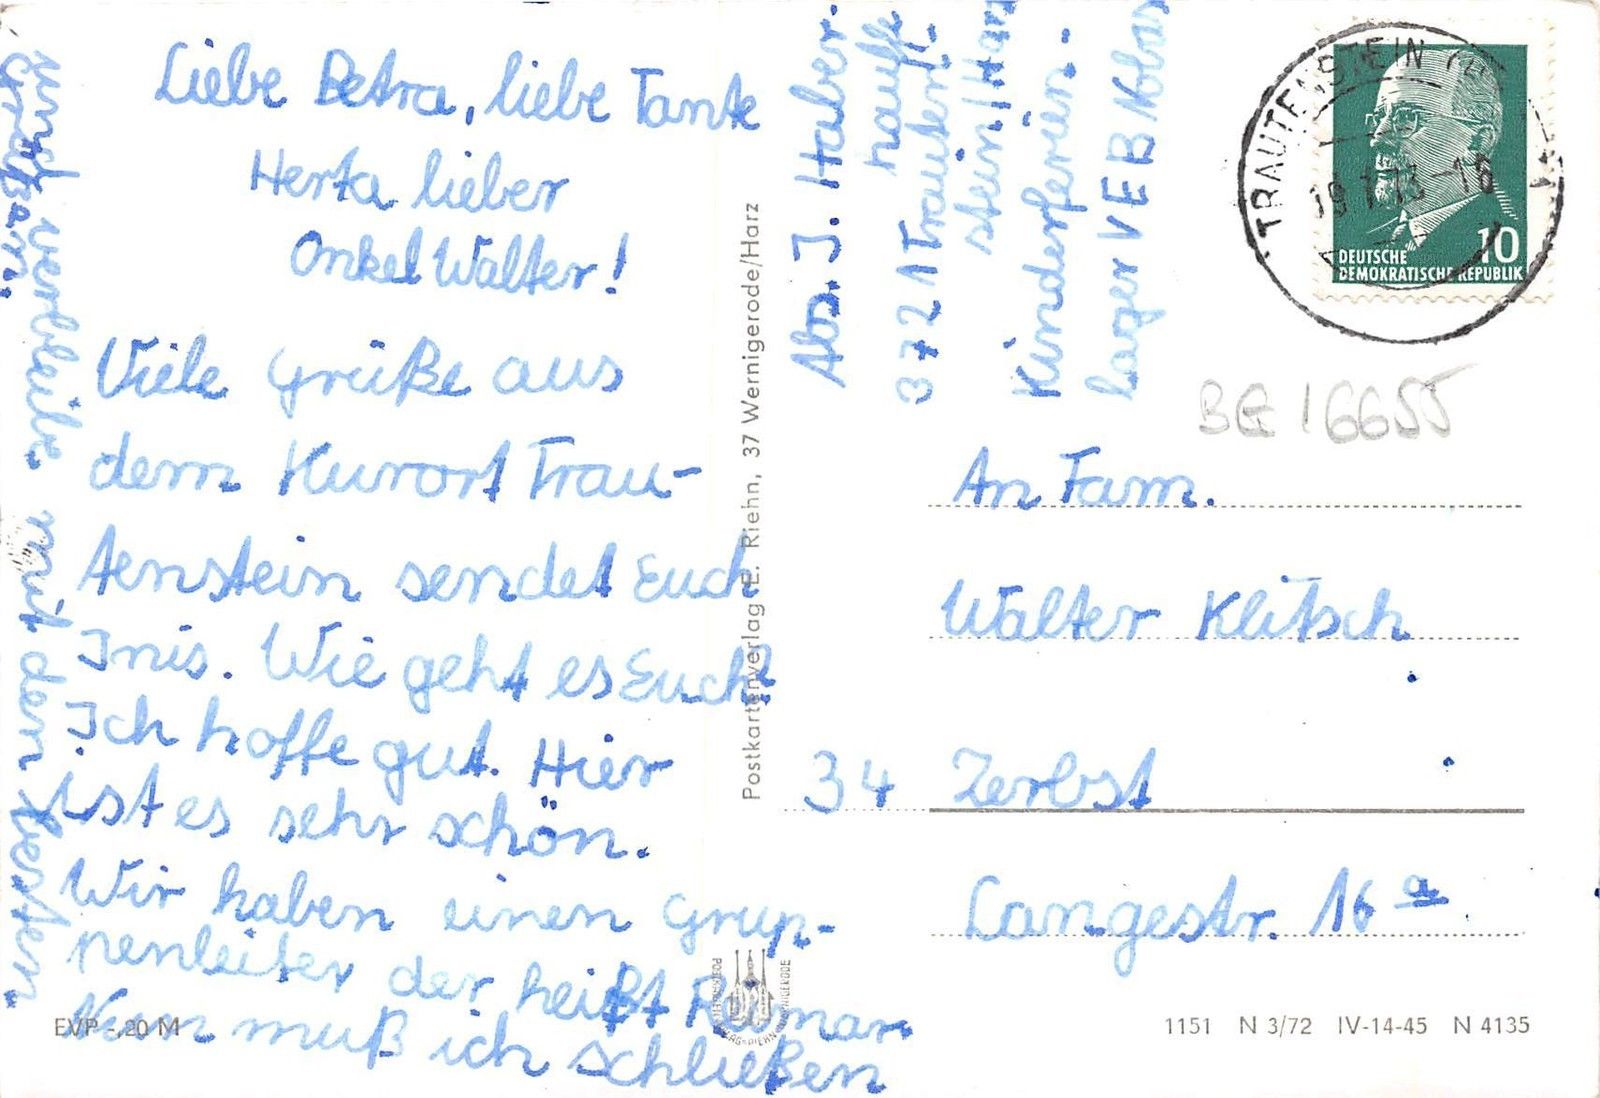 Liebe Petra, liebe Tante
Herta lieber
Onkel Walter!
Viele Grüße aus
dem Kurort Trau-
tenstein sendet Euch
Inis. Wie geht es Euch?
Ich hoffe gut. Hier
ist es sehr schön.
Wir haben einen Grup-
penleiter der heißt Reimar.
Nun muß ich schließen
und verbleibe mit den besten
Grüßen.
Postkartenverlag E. Riehn, 37 Wernigerode/Harz
EVP -,20 M
Abs. J. Haber
hauffe
3721 Trauten-
stein/Harz
Kinderferien-
lager VEB
TRAUTENSTEIN
DEUTSCHE
DEMOKRATISCHE REPUBLIK
10
BG 16655
An Fam.
Walter Klitsch
34 Zerbst
Langestr. 16 a
1151 N 3/72 IV-14-45 N 4135